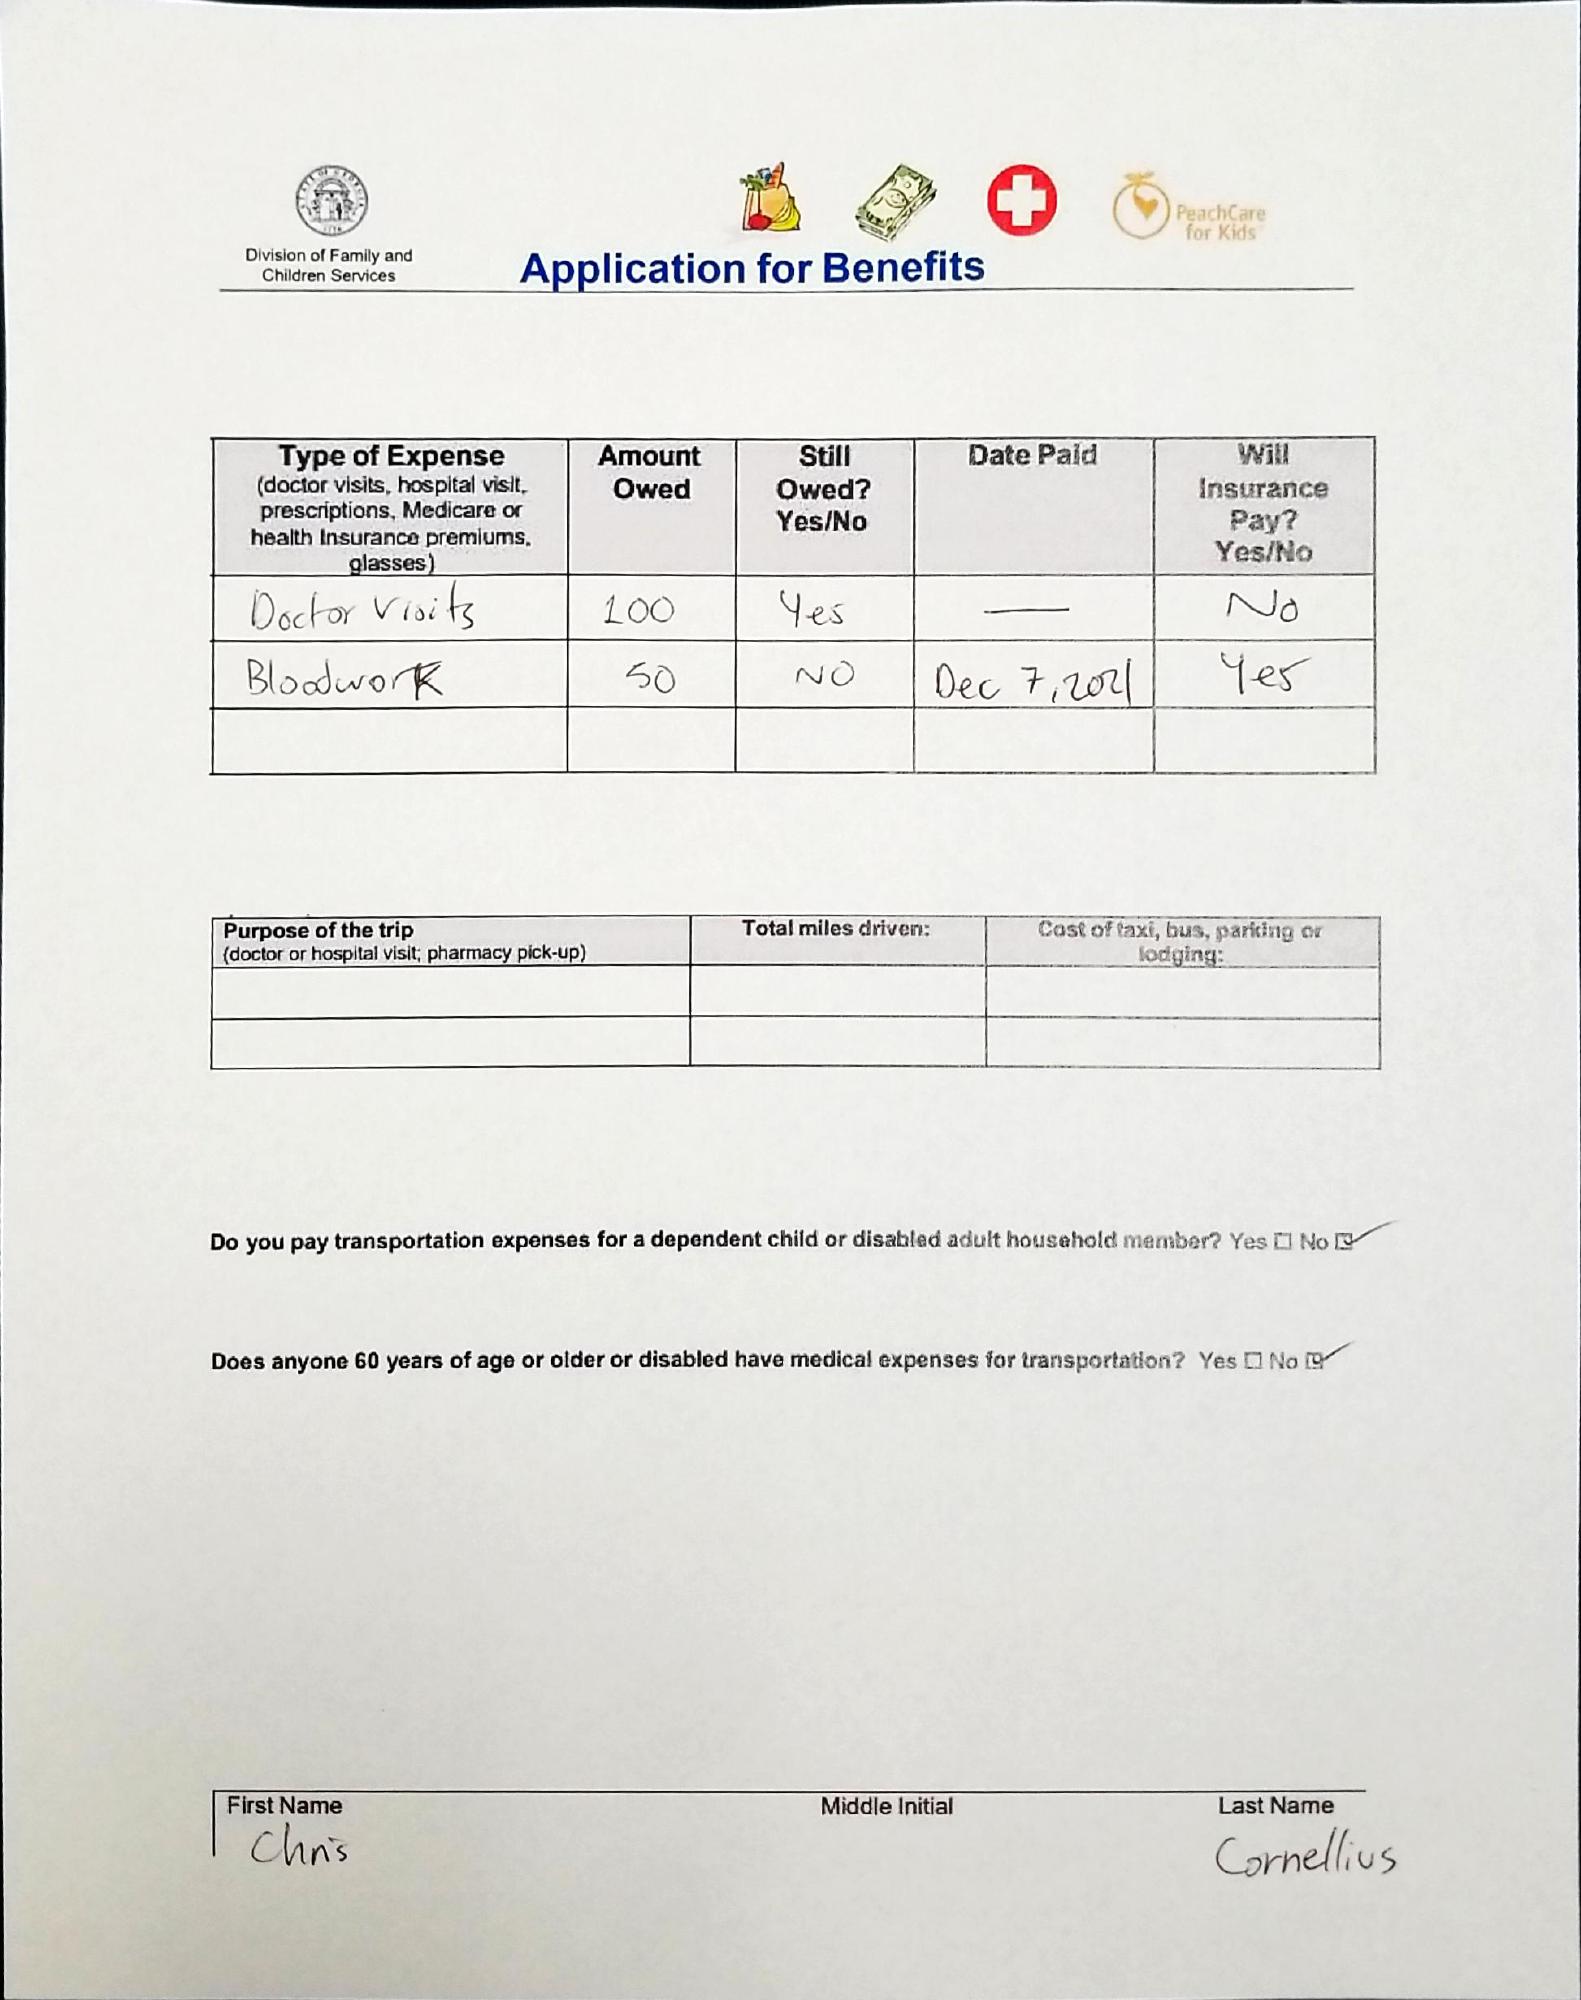 STATE OF GEORGIA
1776
Division of Family and
Children Services
Application for Benefits
PeachCare
for Kids
Type of Expense
(doctor visits, hospital visit,
prescriptions, Medicare or
health Insurance premiums,
glasses)
Amount
Owed
Still
Owed?
Yes/No
Date Paid
Will
Insurance
Pay?
Yes/No
Doctor Visits 100 Yes — No
Bloodwork 50 NO Dec 7, 2021 Yes
Purpose of the trip
(doctor or hospital visit; pharmacy pick-up)
Total miles driven:
Cost of taxi, bus, parking or
lodging:
Do you pay transportation expenses for a dependent child or disabled adult household member? Yes ☐ No ☑
Does anyone 60 years of age or older or disabled have medical expenses for transportation? Yes ☐ No ☑
First Name Middle Initial Last Name
Chris Cornellius